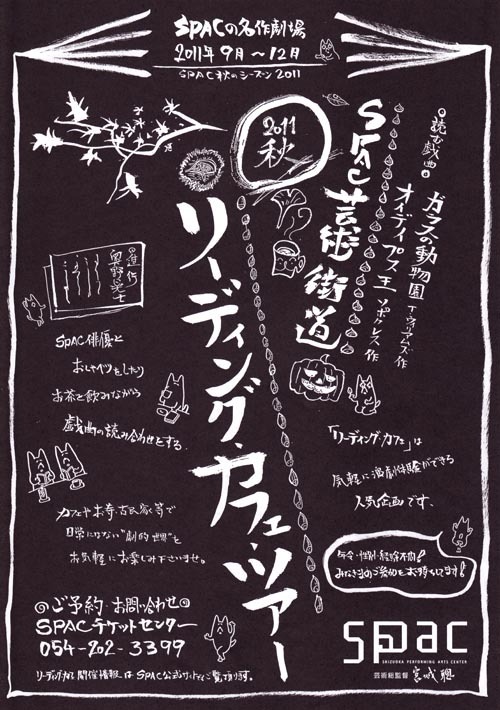 SPACの名作劇場
2011年9月〜12月
SPAC秋のシーズン2011
2011
秋
◎読む戯曲◎
ガラスの動物園 T・ウィリアムズ 作
オイディプス王 ソポクレス 作
SPAC芸術街道
リーディング・カフェ・ツアー
◎進行
奥野晃士
SPAC俳優と
おしゃべりをしたり
お茶を飲みながら
戯曲の読み合わせをする。
カフェやお寺、古民家等で
日常にはない"劇的世界"を
お気軽にお楽しみ下さいませ。
「リーディング・カフェ」は
気軽に演劇体験ができる
人気企画です。
年令・性別・経験不問!
みなさまのご参加をお待ちしてます!
◎ご予約・お問い合わせ◎
SPACチケットセンター
054-202-3399
リーディング・カフェ開催情報はSPAC公式サイトでもご覧頂けます。
spac
SHIZUOKA PERFORMING ARTS CENTER
芸術総監督 宮城聰